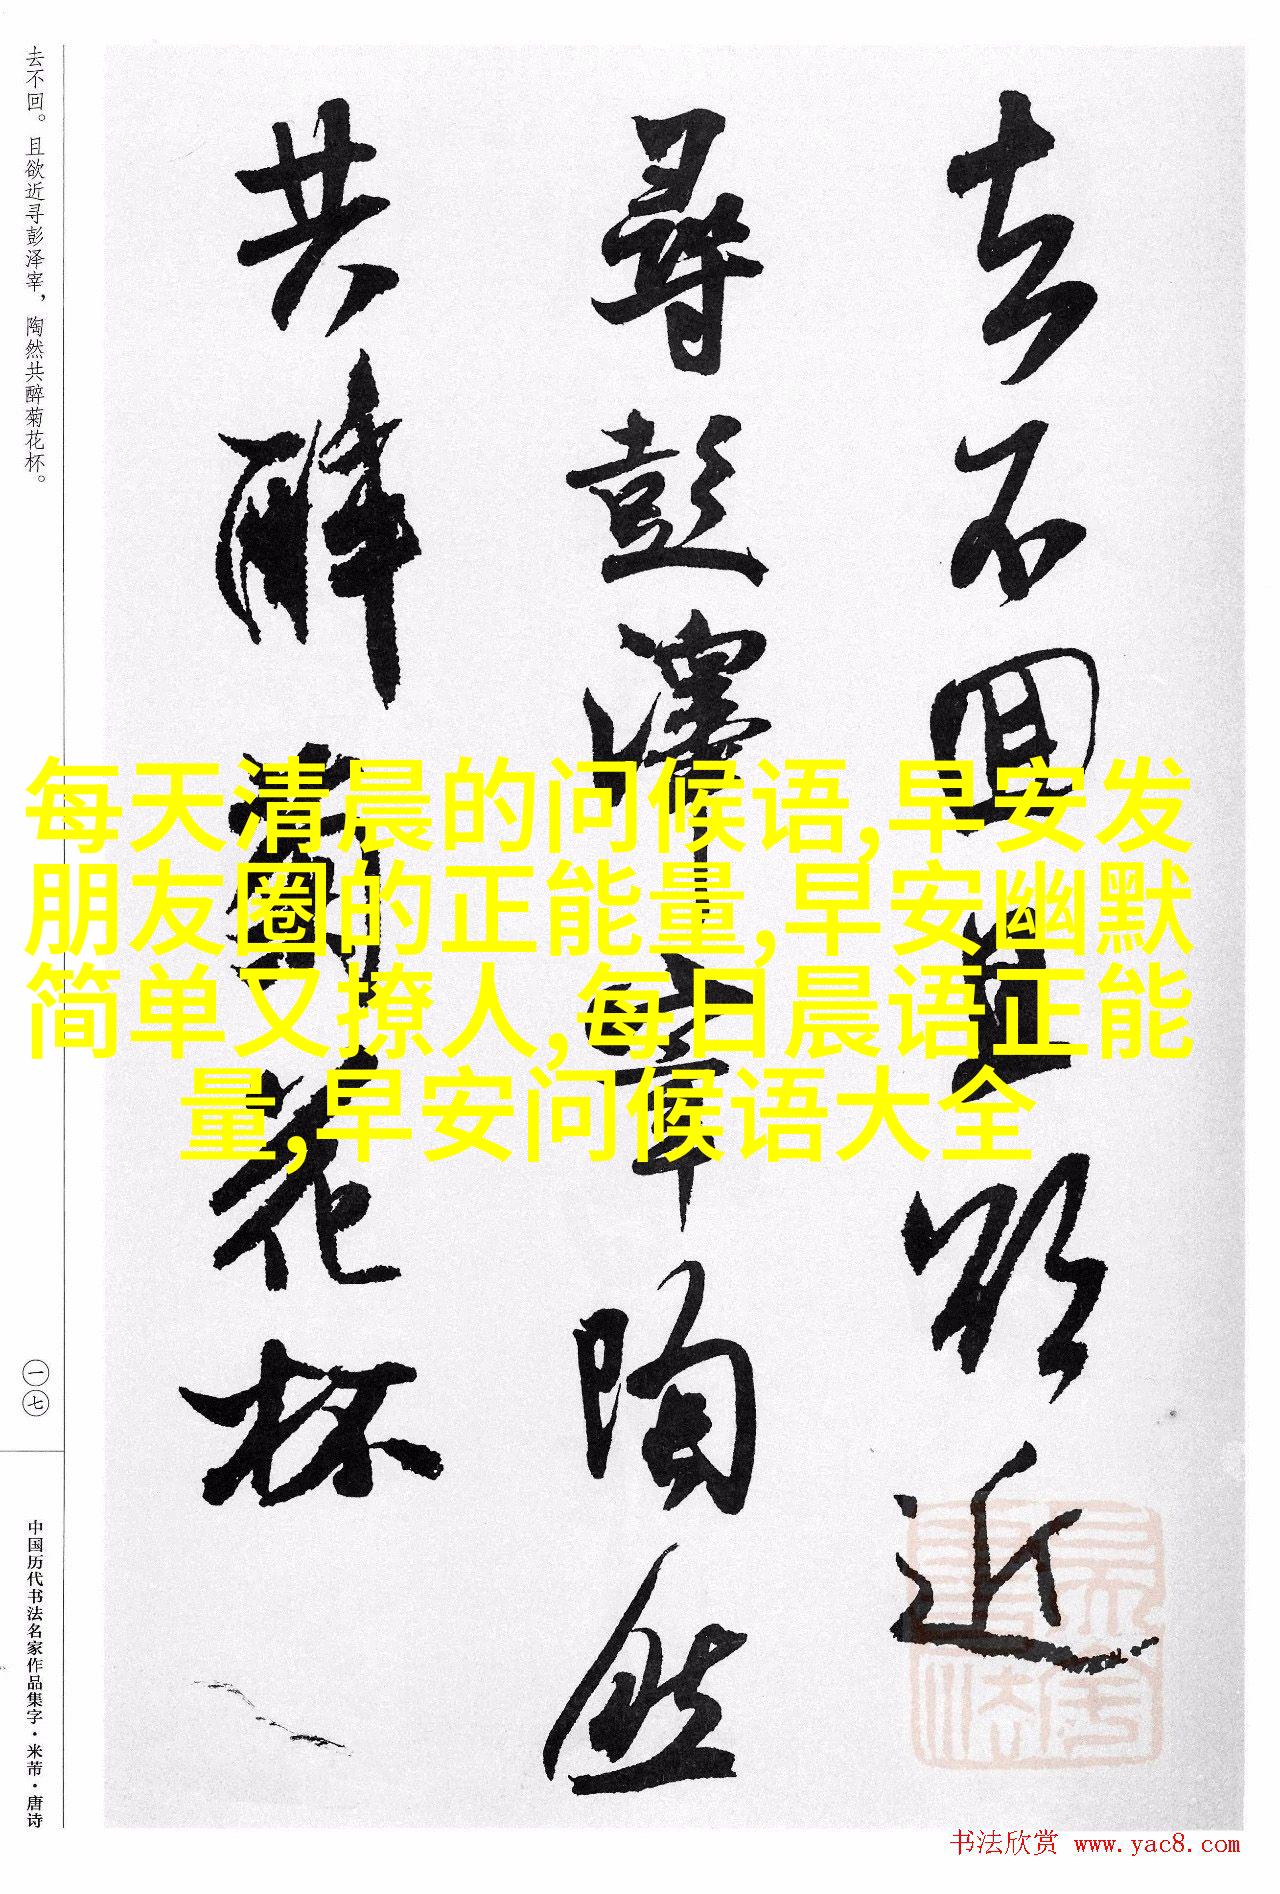 去不回。且欲近寻彭泽宰，陶然共醉菊花杯。
去不回且欲近
尋彭澤宰陶然
共醉菊花杯
每天清晨的问候语,早安发
朋友圈的正能量,早安幽默
简单又撩人,每日晨语正能
量,早安问候语大全
一七
中国历代书法名家作品集字·米芾·唐诗
书法欣赏 www.yac8.com